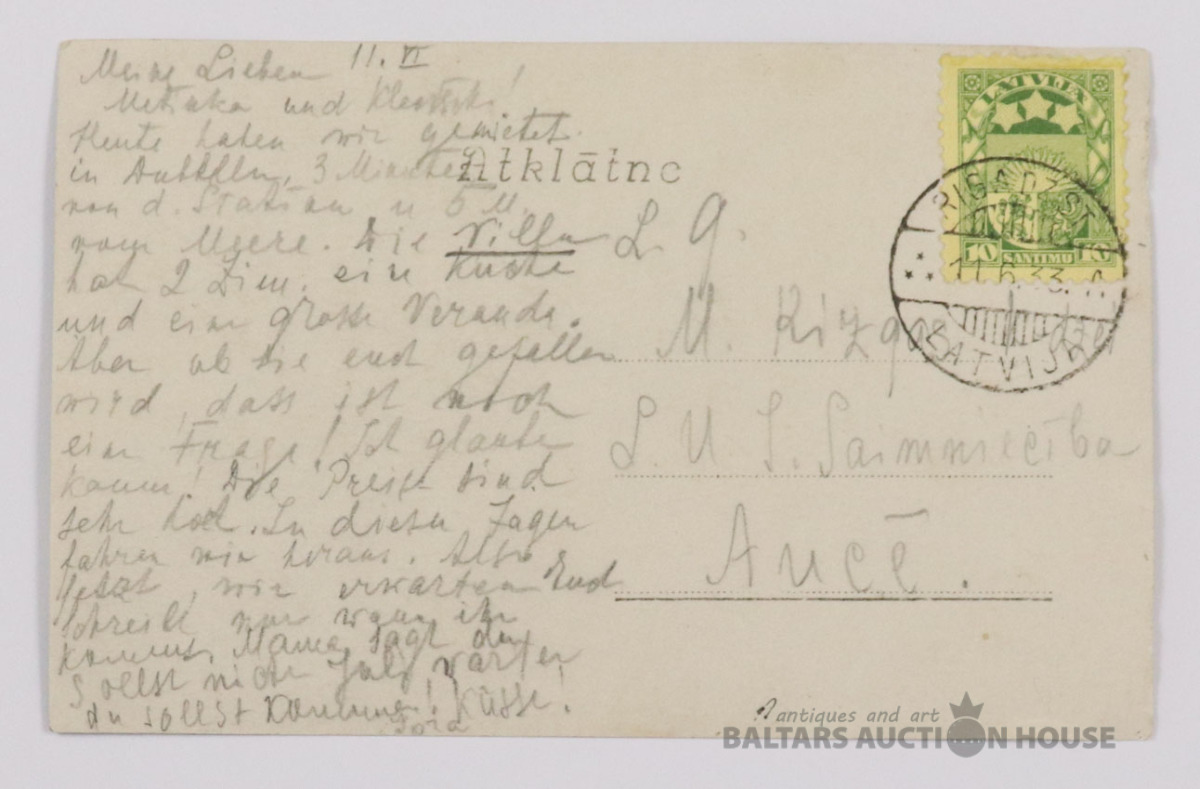 Meine Lieben 11. VI
und !
Heute haben wir gemietet
in 3 Minuten
von d. Station u 5 M.
vom Meere. Die Villa
hat 2 Zim. eine Küche
und eine grosse Veranda.
Aber ob sie euch gefallen
wird, dass ist noch
eine Frage! Ich glaube
kaum! Die Preise sind
sehr hoch. In diesen Tagen
fahren wir heraus. Also
jetzt, wir erwarten Euch
schreibt nur wann ihr
kommt, Mama sagt du
sollst nicht Juli warten
du sollst kommen! Küsse!
Atklātne
L. g.
M.
L. U. S. Saimniecība
Aucē.
LATVIJA
10 SANTIMU 10
RIGA DZ. ST.
11.6.33. A
LATVIJA
antiques and art
BALTARS AUCTION HOUSE